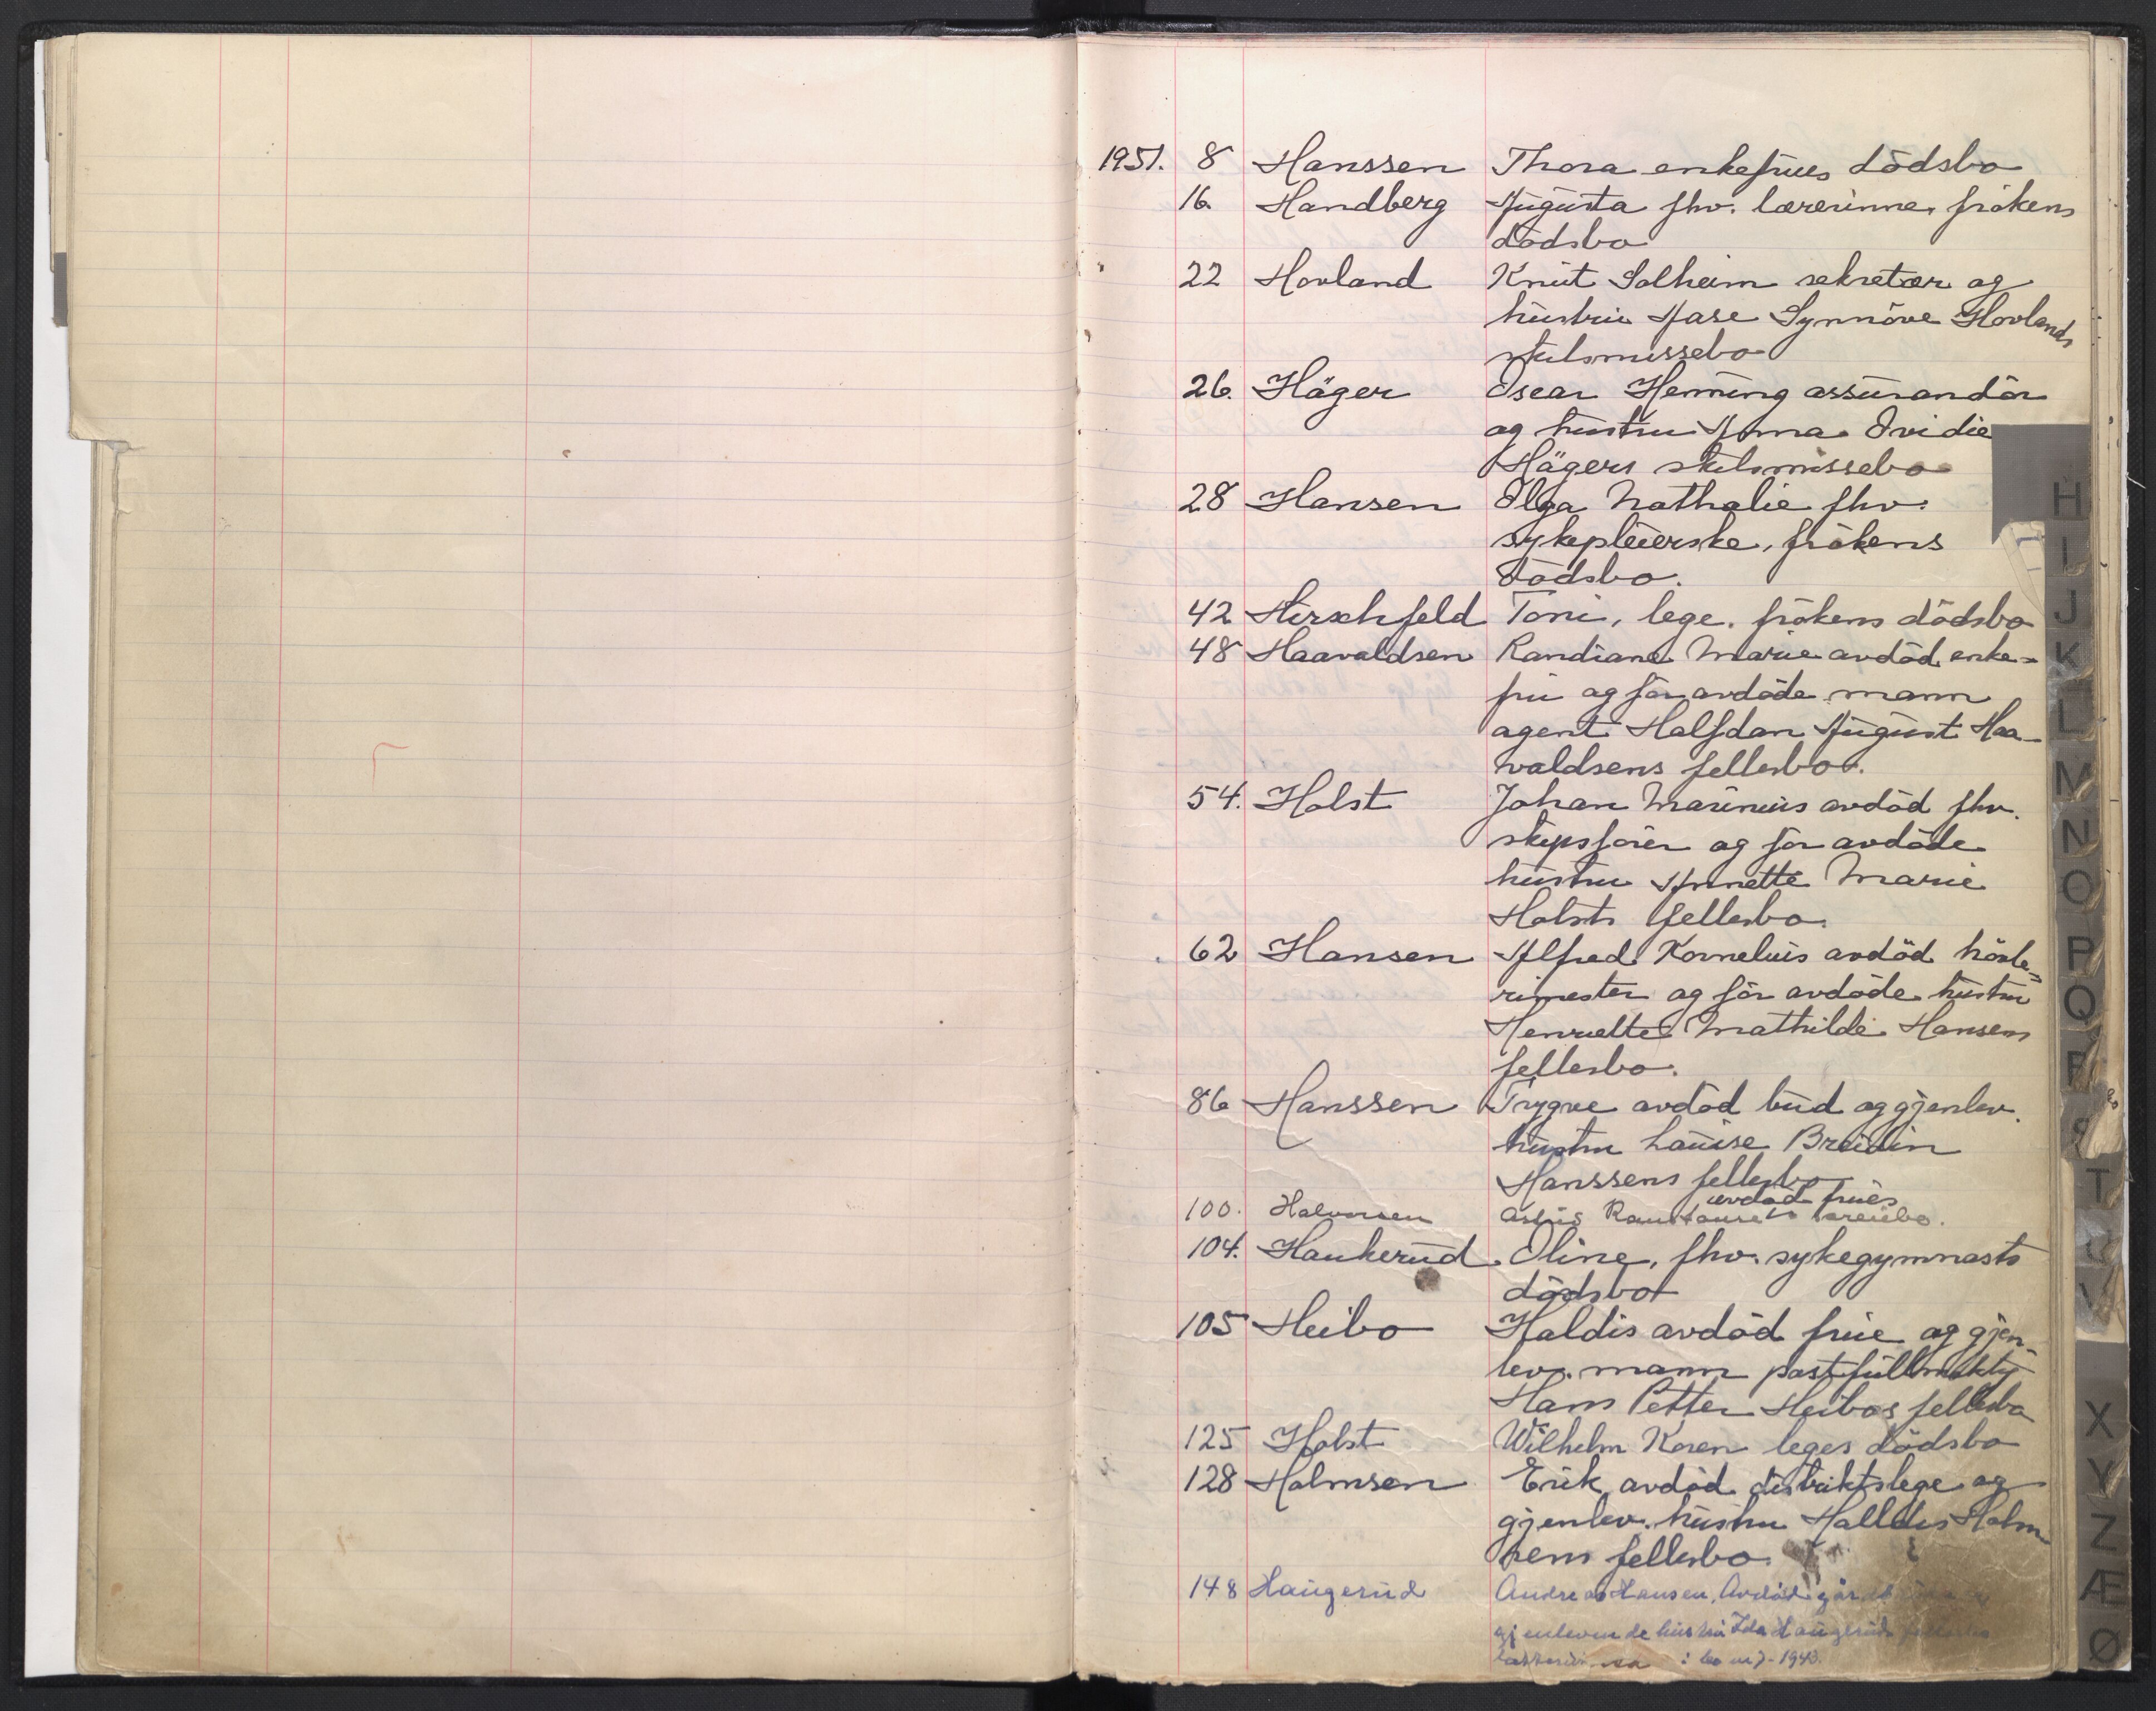 1951. 8 Hanssen Thora enkefrues dödsbo
16. Handberg Augusta fhv. lærerinne, frökens
dödsbo
22 Hovland Knut Solheim sekretær og
hustru Aase Synnöve Hovlands
skilsmissebo
26. Häger Oscar Heming assurandör
og hustru Anna Ovidie
Hägers skilsmissebo
28 Hansen Olga Nathalie fhv.
sykepleierske, frökens
dödsbo.
42 Hirschfeld Toni, lege, frökens dödsbo
48 Haavaldsen Randiane Marie avdöd enke=
fru og för avdöde mann
agent Halfdan August Haa-
valdsens fellesbo.
54. Holst Johan Marinius avdöd fhv.
skipsförer og för avdöde
hustru Annette Marie
Holsts fellesbo.
62 Hansen Alfred Kornelius avdöd
og för avdöde hustru
Henriette Mathilde Hansens
fellesbo.
86 Hanssen Trygve avdöd bud og gjenlev.
hustru Louise Breidin
Hanssens fellesbo
avdöd frues
100. Halvorsen særeiebo.
104. Haukerud Oline, fhv. sykegymnasts
dödsbo
105 Heibo Haldis avdöd frue og gjen-
lev. mann postfullmektig
Hans Petter Heibos fellesbo
125 Holst Wilhelm Koren leges dödsbo
128 Holmsen Erik, avdöd distriktslege og
gjenlev. hustru Halldis Holm
sens fellesbo
148 Haugerud Andreas Hansen, Avdöd
gjenlevende hustru Ida Haugeruds
1943.
H
I
J
K
L
M
N
O
P
Q
R
S
T
U
V
X
Y
Z
Æ
Ø